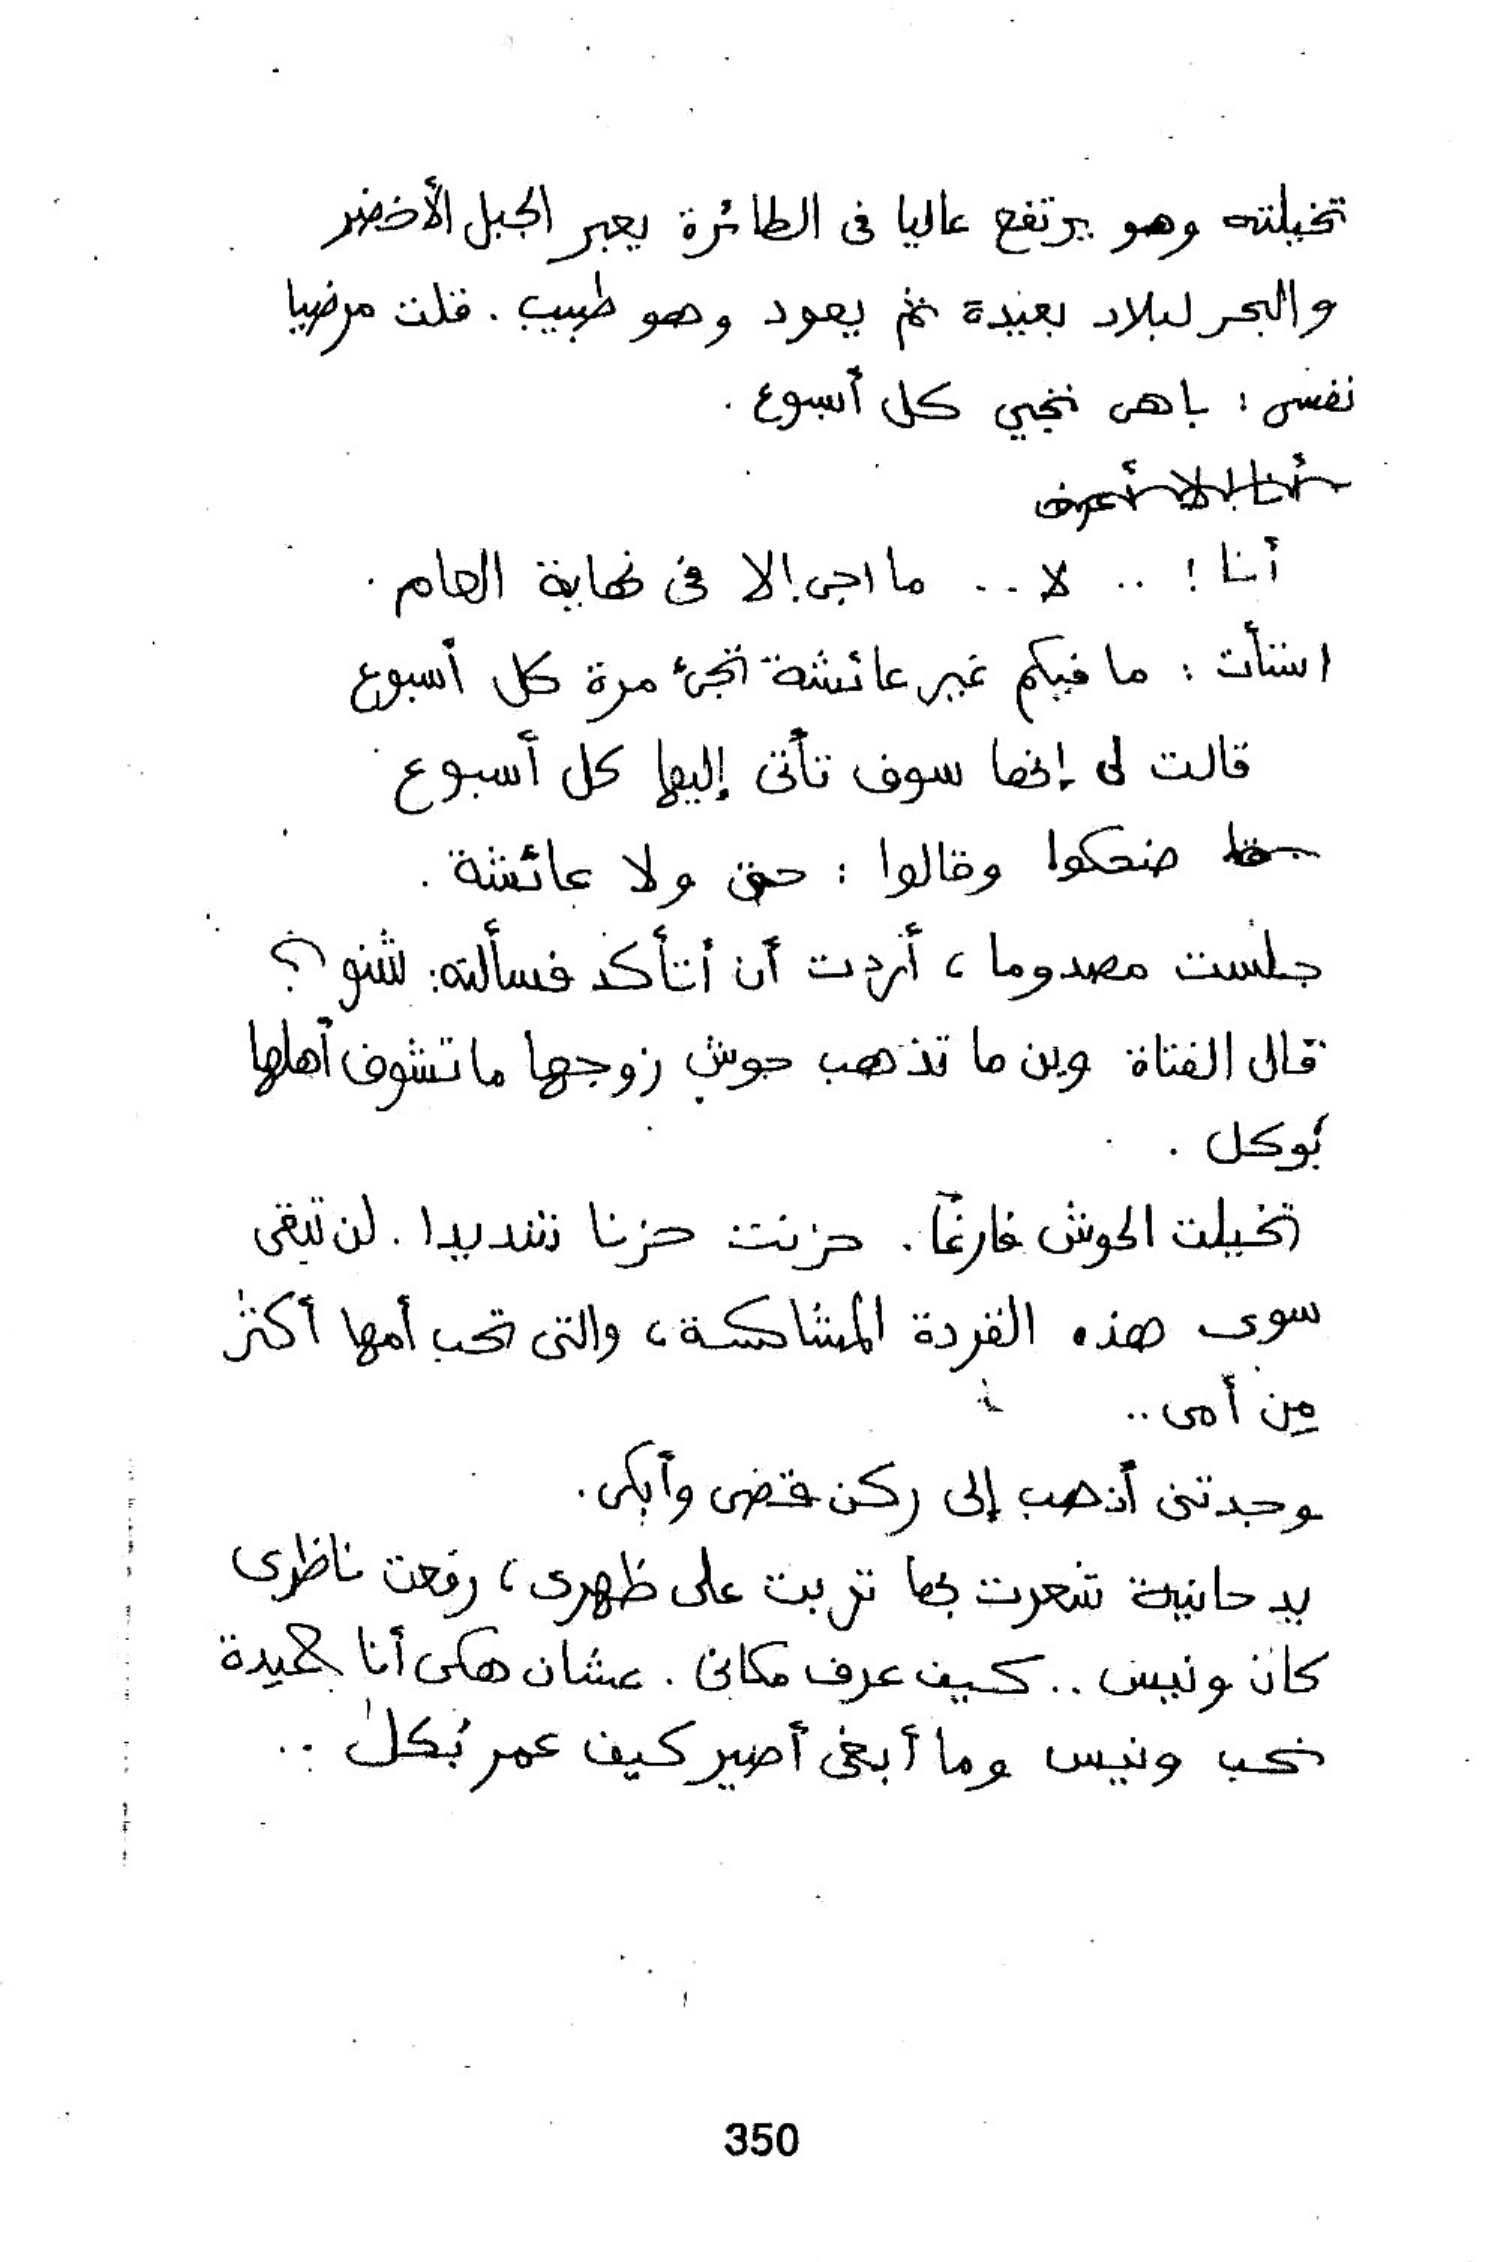 تخيلته وهو يرتفع عاليا فى الطائرة يعبر الجبل الأخضر
والبحر لبلاد بعيدة ثم يعود وهو طبيب . قلت مرضيا
نفسى : باهى نجيي كل أسبوع .
أنا لا أعرف
أنا ! .. لا .. ما اجى إلا فى نهاية العام .
استأت : ما فيكم غير عائشة تجئ مرة كل أسبوع
قالت لى إنها سوف تأتى إليها كل أسبوع
ضحكوا وقالوا : حتى ولا عائشة .
جلست مصدوما ، أردت أن أتأكد فسألته : شنو ؟
قال الفتاة وين ما تذهب حوش زوجها ما تشوف أهلها
بُوكل .
تخيلت الحوش فارغًا . حزنت حزنا شديدا . لن تبقى
سوى هذه القردة المشاكسة ، والتى تحب أمها أكثر
مِن أمى ..
وجدتنى أذهب إلى ركن قصى وأبكى .
يد حانية شعرت بها تربت على ظهرى ، رفعت ناظرى
كان ونيس .. كيف عرف مكانى . عشان هكى أنا حميدة
نحب ونيس وما أبغى أصير كيف عمر بُكل ..
350